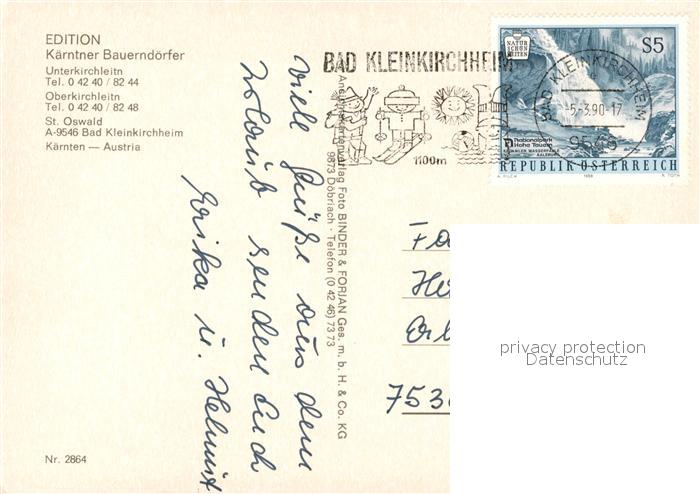 EDITION
Kärntner Bauerndörfer
Unterkirchleitn
Tel. 0 42 40 / 82 44
Oberkirchleitn
Tel. 0 42 40 / 82 48
St. Oswald
A-9546 Bad Kleinkirchheim
Kärnten — Austria
Nr. 2864
Viele Grüße aus dem
Urlaub senden Euch
Erika u. Helmut
Foto BINDER & FORJAN Ges. m. b. H. & Co. KG
9873 Döbriach · Telefon (0 42 46) 73 73
BAD KLEINKIRCHHEIM
1100m
BAD KLEINKIRCHHEIM
-5-3.90-17
NATUR
SCHÖN
HEITEN
S5
Nationalpark
Hohe Tauern
KRIMMLER WASSERFÄLLE
SALZBURG
REPUBLIK ÖSTERREICH
1988
753
privacy protection
Datenschutz